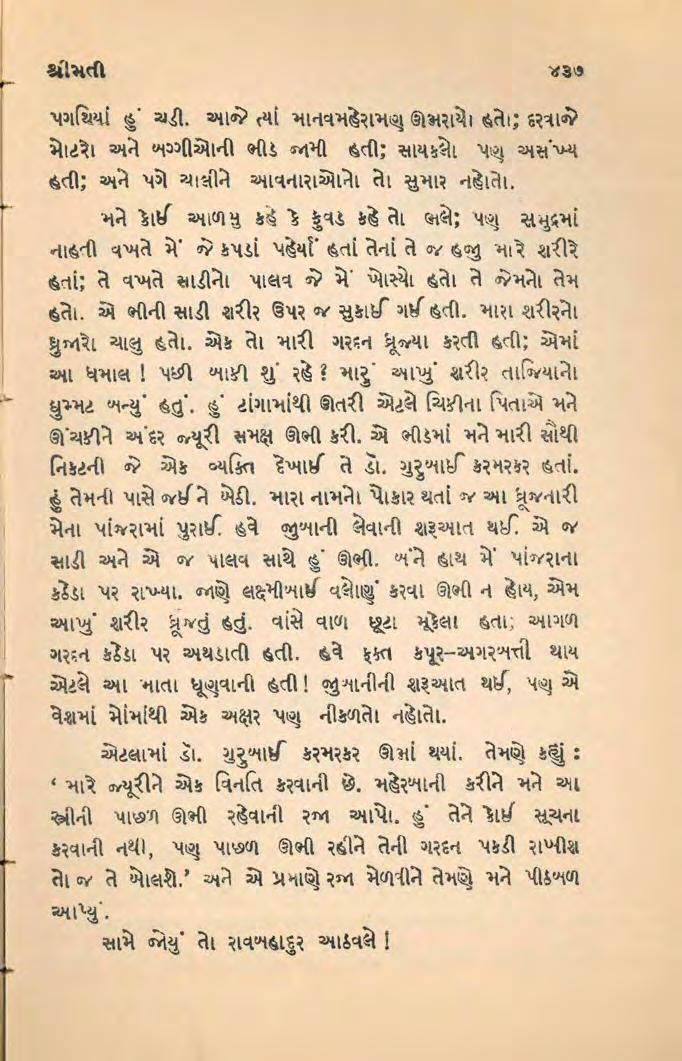 શ્રીમતી ૪૩૭
પગથિયાં હું ચડી. આજે ત્યાં માનવમહેરામણુ ઊભરાયો હતો; દરવાજે
મોટરો અને બગ્ગીઓની ભીડ જામી હતી; સાયકલો પણ અસંખ્ય
હતી; અને પગે ચાલીને આવનારાઓનો તો સુમાર નહોતો.
મને કોઈ આળસુ કહે કે ફુવડ કહે તો ભલે; પણ સમુદ્રમાં
નાહતી વખતે મેં જે કપડાં પહેર્યાં હતાં તેનાં તે જ હજુ મારે શરીરે
હતાં; તે વખતે સાડીનો પાલવ જે મેં ખોસ્યો હતો તે જેમનો તેમ
હતો. એ ભીની સાડી શરીર ઉપર જ સુકાઈ ગઈ હતી. મારા શરીરનો
ધ્રુજારો ચાલુ હતો. એક તો મારી ગરદન ધ્રૂજ્યા કરતી હતી; એમાં
આ ધમાલ ! પછી બાકી શું રહે ? મારું આખું શરીર તાજિયાનો
ઘુમ્મટ બન્યું હતું. હું ટાંગામાંથી ઊતરી એટલે ચિકીના પિતાએ મને
ઊંચકીને અંદર જ્યૂરી સમક્ષ ઊભી કરી. એ ભીડમાં મને મારી સૌથી
નિકટની જે એક વ્યક્તિ દેખાઈ તે ડૉ. ગુરુબાઈ કરમરકર હતાં.
હું તેમની પાસે જઈને બેઠી. મારા નામનો પોકાર થતાં જ આ ધ્રૂજનારી
મેના પાંજરામાં પુરાઈ. હવે જુબાની લેવાની શરૂઆત થઈ. એ જ
સાડી અને એ જ પાલવ સાથે હું ઊભી. બંને હાથ મેં પાંજરાના
કઠેડા પર રાખ્યા. જાણે લક્ષ્મીબાઈ વલોણું કરવા ઊભી ન હોય, એમ
આખું શરીર ધ્રૂજતું હતું. વાંસે વાળ છૂટા મૂકેલા હતા; આગળ
ગરદન કઠેડા પર અથડાતી હતી. હવે ફક્ત કપૂર–અગરબત્તી થાય
એટલે આ માતા ધૂણવાની હતી! જુબાનીની શરૂઆત થઈ, પણ એ
વેશમાં મોંમાંથી એક અક્ષર પણ નીકળતો નહોતો.
એટલામાં ડૉ. ગુરુબાઈ કરમરકર ઊભાં થયાં. તેમણે કહ્યું :
‘ મારે જ્યૂરીને એક વિનતિ કરવાની છે. મહેરબાની કરીને મને આ
સ્ત્રીની પાછળ ઊભી રહેવાની રજા આપો. હું તેને કોઈ સૂચના
કરવાની નથી, પણ પાછળ ઊભી રહીને તેની ગરદન પકડી રાખીશ
તો જ તે બોલશે.’ અને એ પ્રમાણે રજા મેળવીને તેમણે મને પીઠબળ
આપ્યું.
સામે જોયું તો રાવબહાદુર આઠવલે !